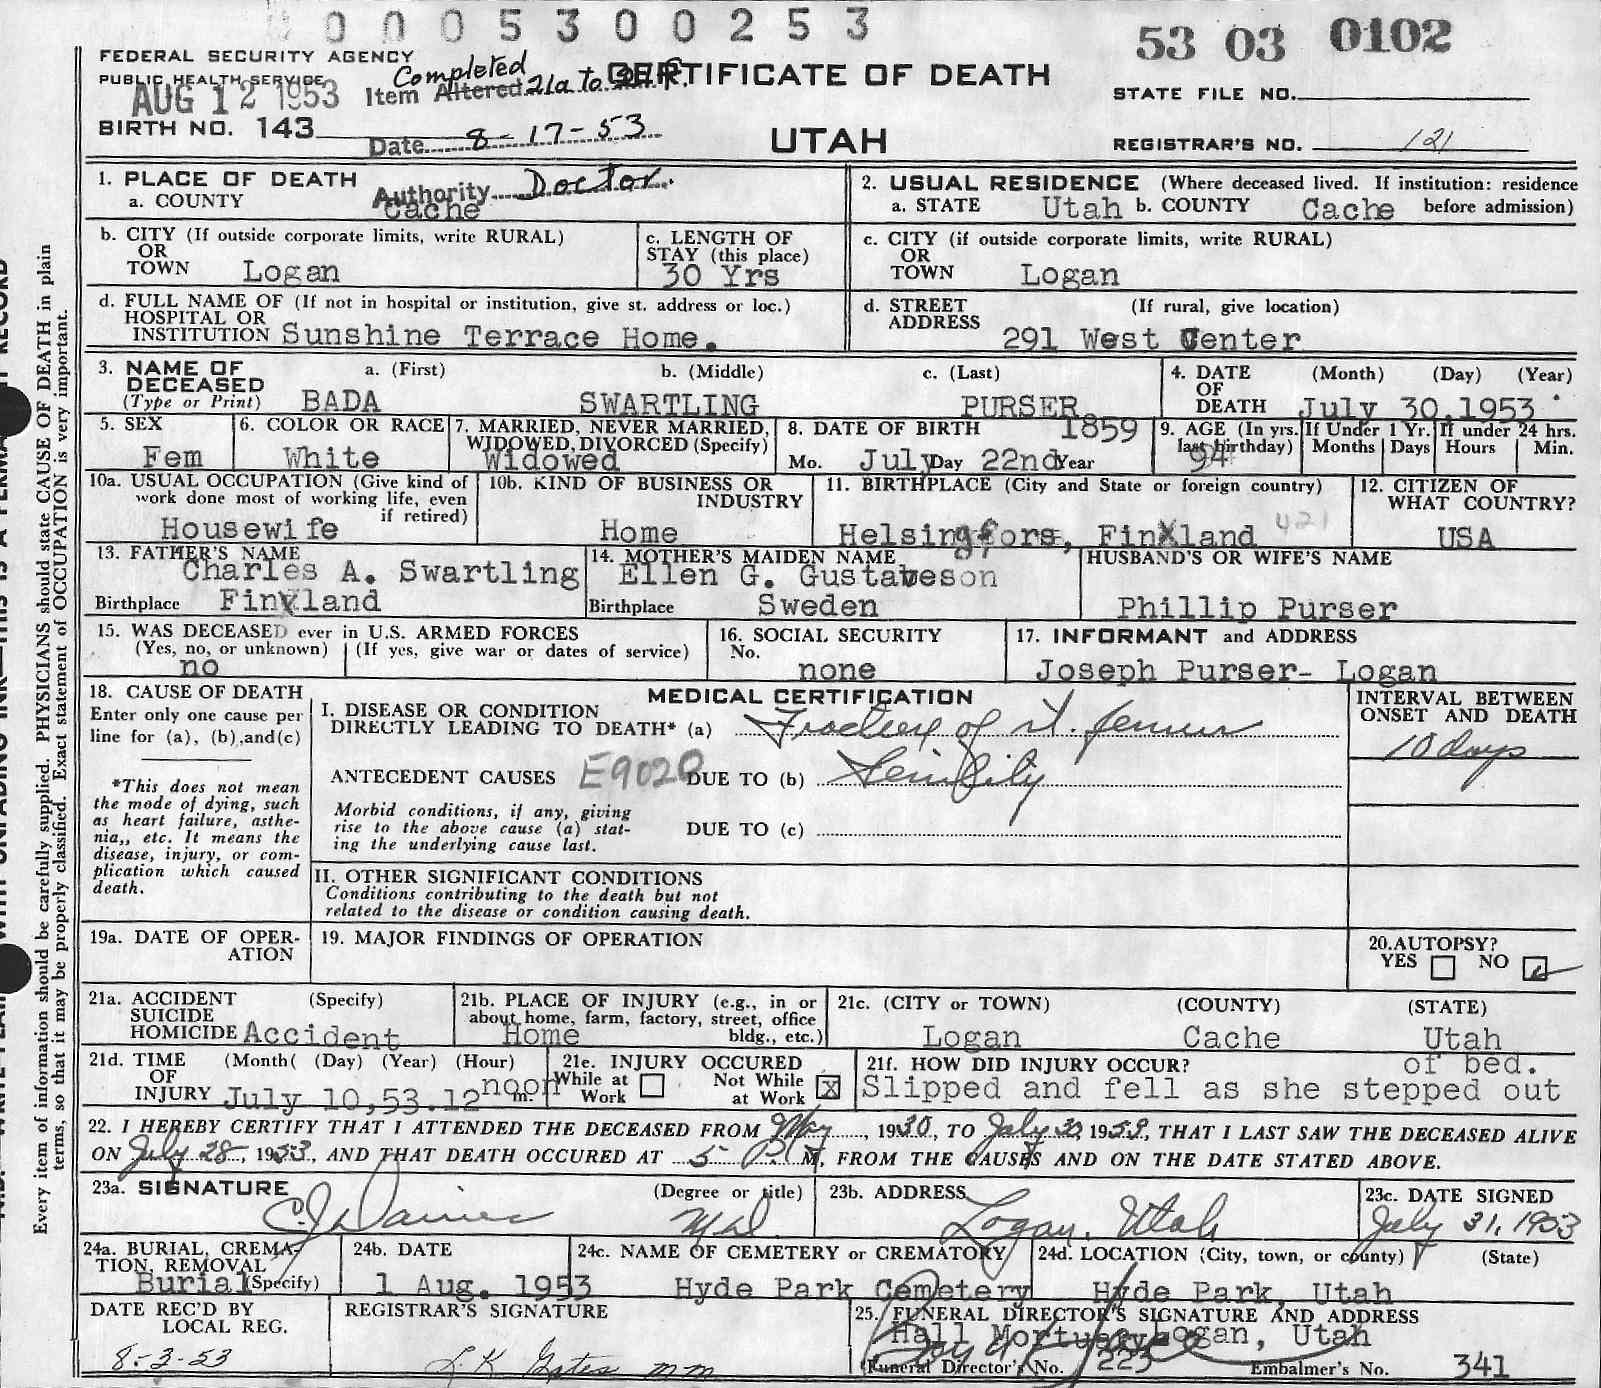 0 0 0 5 3 0 0 2 5 3
53 03 0102
FEDERAL SECURITY AGENCY
PUBLIC HEALTH SERVICE
AUG 12 1953
Completed
Item Altered 21a to 21f.
CERTIFICATE OF DEATH
STATE FILE NO.
BIRTH NO. 143
Date 8-17-53
UTAH
REGISTRAR'S NO. 121
1. PLACE OF DEATH
Authority Doctor.
a. COUNTY Cache
2. USUAL RESIDENCE (Where deceased lived. If institution: residence
a. STATE Utah b. COUNTY Cache before admission)
b. CITY (If outside corporate limits, write RURAL)
OR
TOWN Logan
c. LENGTH OF
STAY (this place)
30 Yrs
c. CITY (if outside corporate limits, write RURAL)
OR
TOWN Logan
d. FULL NAME OF (If not in hospital or institution, give st. address or loc.)
HOSPITAL OR
INSTITUTION Sunshine Terrace Home.
d. STREET (If rural, give location)
ADDRESS
291 West Center
3. NAME OF a. (First) b. (Middle) c. (Last)
DECEASED
(Type or Print) BADA SWARTLING PURSER
4. DATE (Month) (Day) (Year)
OF
DEATH July 30,1953
5. SEX
Fem
6. COLOR OR RACE
White
7. MARRIED, NEVER MARRIED,
WIDOWED, DIVORCED (Specify)
Widowed
8. DATE OF BIRTH 1859
Mo. July Day 22nd Year
9. AGE (In yrs. If Under 1 Yr. If under 24 hrs.
last birthday) Months Days Hours Min.
94
10a. USUAL OCCUPATION (Give kind of
work done most of working life, even
if retired)
Housewife
10b. KIND OF BUSINESS OR
INDUSTRY
Home
11. BIRTHPLACE (City and State or foreign country)
Helsingfors, Finland 421
12. CITIZEN OF
WHAT COUNTRY?
USA
13. FATHER'S NAME
Charles A. Swartling
Birthplace Finland
14. MOTHER'S MAIDEN NAME
Ellen G. Gustaveson
Birthplace Sweden
HUSBAND'S OR WIFE'S NAME
Phillip Purser
15. WAS DECEASED ever in U.S. ARMED FORCES
(Yes, no, or unknown) (If yes, give war or dates of service)
no
16. SOCIAL SECURITY
No.
none
17. INFORMANT and ADDRESS
Joseph Purser- Logan
18. CAUSE OF DEATH
Enter only one cause per
line for (a), (b), and (c)
*This does not mean
the mode of dying, such
as heart failure, asthe-
nia,, etc. It means the
disease, injury, or com-
plication which caused
death.
MEDICAL CERTIFICATION
I. DISEASE OR CONDITION
DIRECTLY LEADING TO DEATH* (a) Fracture of rt. femur
ANTECEDENT CAUSES E9020 DUE TO (b) Senility
Morbid conditions, if any, giving
rise to the above cause (a) stat-
ing the underlying cause last.
DUE TO (c)
INTERVAL BETWEEN
ONSET AND DEATH
10 days
II. OTHER SIGNIFICANT CONDITIONS
Conditions contributing to the death but not
related to the disease or condition causing death.
19a. DATE OF OPER-
ATION
19. MAJOR FINDINGS OF OPERATION
20. AUTOPSY?
YES NO
21a. ACCIDENT (Specify)
SUICIDE
HOMICIDE Accident
21b. PLACE OF INJURY (e.g., in or
about home, farm, factory, street, office
bldg., etc.)
Home
21c. (CITY or TOWN) (COUNTY) (STATE)
Logan Cache Utah
21d. TIME (Month( (Day) (Year) (Hour)
OF
INJURY July 10,53.12 noon m.
21e. INJURY OCCURED
While at Work Not While at Work X
21f. HOW DID INJURY OCCUR? of bed.
Slipped and fell as she stepped out
22. I HEREBY CERTIFY THAT I ATTENDED THE DECEASED FROM May, 1930, TO July 30 1953, THAT I LAST SAW THE DECEASED ALIVE
ON July 28, 1953, AND THAT DEATH OCCURED AT 5 P. M, FROM THE CAUSES AND ON THE DATE STATED ABOVE.
23a. SIGNATURE (Degree or title)
C.J. Daines M.D.
23b. ADDRESS
Logan, Utah
23c. DATE SIGNED
July 31, 1953
24a. BURIAL, CREMA-
TION, REMOVAL
Burial (Specify)
24b. DATE
1 Aug. 1953
24c. NAME OF CEMETERY or CREMATORY
Hyde Park Cemetery
24d. LOCATION (City, town, or county) (State)
Hyde Park, Utah
DATE REC'D BY
LOCAL REG.
8-3-53
REGISTRAR'S SIGNATURE
25. FUNERAL DIRECTOR'S SIGNATURE AND ADDRESS
Hall Mortuary Logan, Utah
(Funeral Director's No. 223 Embalmer's No. 341
Every item of information should be carefully supplied. PHYSICIANS should state CAUSE OF DEATH in plain
terms, so that it may be properly classified. Exact statement of OCCUPATION is very important.